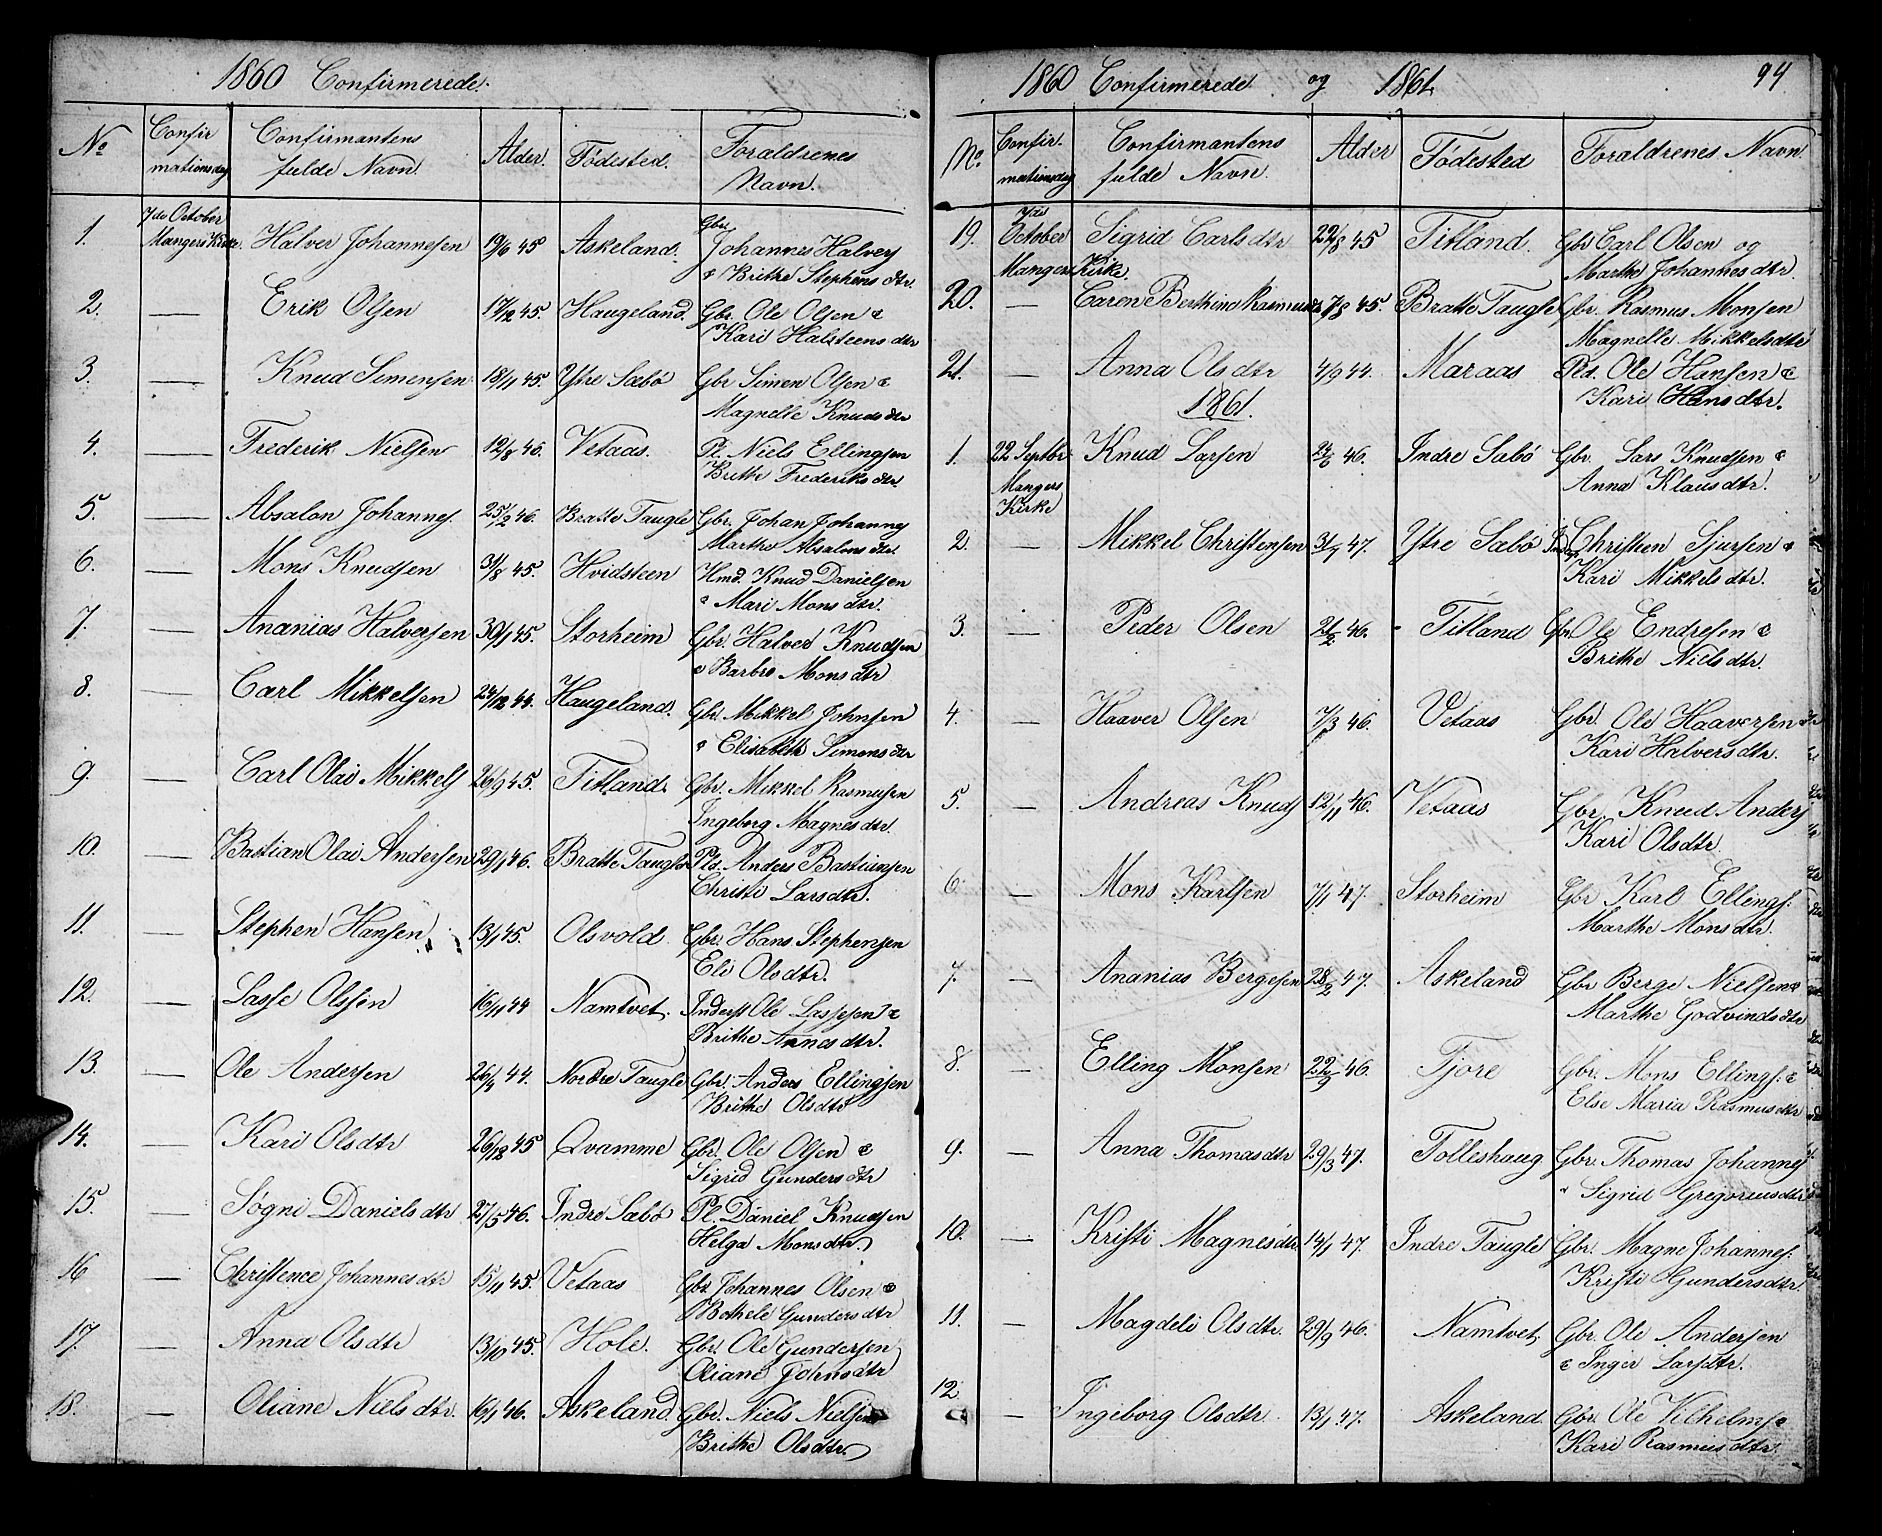 1860 Confirmerede.
No Confirmationsdag Confirmantens fulde Navn. Alder. Fødested. Foraldrenes Navn.
1. 7de October Mangers Kirke. Halver Johannesen 19/6 45 Askeland. Gbr. Johannes Halvers
& Brithe Stephensdtr.
2. — Erik Olsen 17/12 45. Haugeland. Gbr. Ole Olsen &
Kari Halsteensdtr
3. — Knud Simensen 18/11 45. Ytre Sæbö Gbr Simen Olsen &
Magnelle Knudsdtr
4. — Frederik Nielsen 12/8 46. Vetaas. Pl. Niels Ellingsen
Brithe Frederiksdtr.
5. — Absalon Johannes. 25/2 46. Bratte Taugle Gbr. Johan Johannes
Marthe Absalonsdtr
6. — Mons Knudsen 31/8 45. Hvidsteen Hmd. Knud Danielsen
& Mari Monsdtr.
7. — Ananias Halversen 30/8 45. Storheim Gbr. Halver Knudsen
& Barbro Monsdtr
8. — Carl Mikkelsen 24/12 44. Haugeland. Gbr. Mikkel Johnsen
& Elisabeth Simensdtr
9. — Carl Olai Mikkels 26/9 45. Titland. Gbr. Mikkel Rasmusen
Ingeborg Magnesdtr.
10. — Bastian Olai Andersen 29/1 46. Bratte Taugle Pld. Anders Bastiansen
Christi Larsdtr.
11. — Stephen Hansen 13/1 45. Olsvold Gbr. Hans Stephensen
Eli Olsdtr.
12. — Lasse Olssen 16/11 44 Namtvet. Inderst Ole Lassesen &
Brithe Annesdtr.
13. — Ole Andersen 26/9 44. Nordre Taugle Gbr. Anders Ellingsen
Brithe Olsdtr
14. — Kari Olsdtr 26/12 45 Qvamme Gbr. Ole Olsen &
Sigrid Gundersdtr
15. — Søgni Danielsdtr 27/5 46. Indre Sæbö Pl. Daniel Knudsen
Helga Monsdtr.
16 — Christence Johannesdtr 15/11 45. Vetaas Gbr Johannes Olsen &
Bothele Gundersdtr
17. — Anna Olsdtr 13/10 45. Hole. Gbr. Ole Gundersen
Oliane Johnsdtr
18. — Oliane Nielsdtr. 16/1 46. Askeland Gbr. Niels Nielsen
Brithe Olsdtr.
1860 Confirmerede og 1861. 94
No. Confirmationsdag Confirmantens fulde Navn. Alder Fødested Foraldrenes Navn.
19. 7de October Mangers Kirke. Sigrid Carlsdtr 22/8 45 Titland. Gbr Carl Olsen og
Marthe Johannesdtr.
20. — Caren Berthine Rasmusdtr 7/8 45. Bratte Taugle Gbr. Rasmus Monsen
Magnelle Mikkelsdtr
21. — Anna Olsdtr 4/9 44. Maraas Pld. Ole Hansen &
Kari Hansdtr.
1861.
1. 22 Septbr. Mangers Kirke Knud Larsen 24/6 46. Indre Sæbö Gbr. Lars Knudsen &
Anna Klausdtr.
2. — Mikkel Christensen 31/7 47. Ytre Sæbö Christen Sjursen &
Kari Mikkelsdtr.
3. — Peder Olsen 21/5 46. Titland Gbr Ole Endresen &
Brithe Nielsdtr.
4. — Haaver Olsen 7/3 46. Vetaas Gbr. Ole Haaversen
Kari Halversdtr.
5. — Andreas Knuds 12/11 46. Vetaas Gbr. Knud Anders
Kari Olsdtr.
6. — Mons Karlsen 7/1 47. Storheim Gbr Karl Ellings.
Marthe Monsdtr.
7. — Ananias Bergesen 28/2 47. Askeland Gbr Berge Nielsen &
Marthe Godvindsdtr
8. — Elling Monsen 22/9 46. Tjore Gbr. Mons Ellings. &
Else Maria Rasmusdtr
9. — Anna Thomasdtr 29/3 47. Tolleshaug Gbr. Thomas Johannes
" Sigrid Gregoriusdtr
10. — Kristi Magnesdtr. 14/1 47. Indre Taugle Gbr. Magne Johannes.
Kristi Gundersdtr.
11. — Magdeli Olsdtr. 29/9 46. Namtvet, Gbr. Ole Andersen
& Inger Larsdtr.
12. — Ingeborg Olsdtr. 13/1 47. Askeland. Gbr. Ole Vilhelms &
Kari Rasmusdtr.